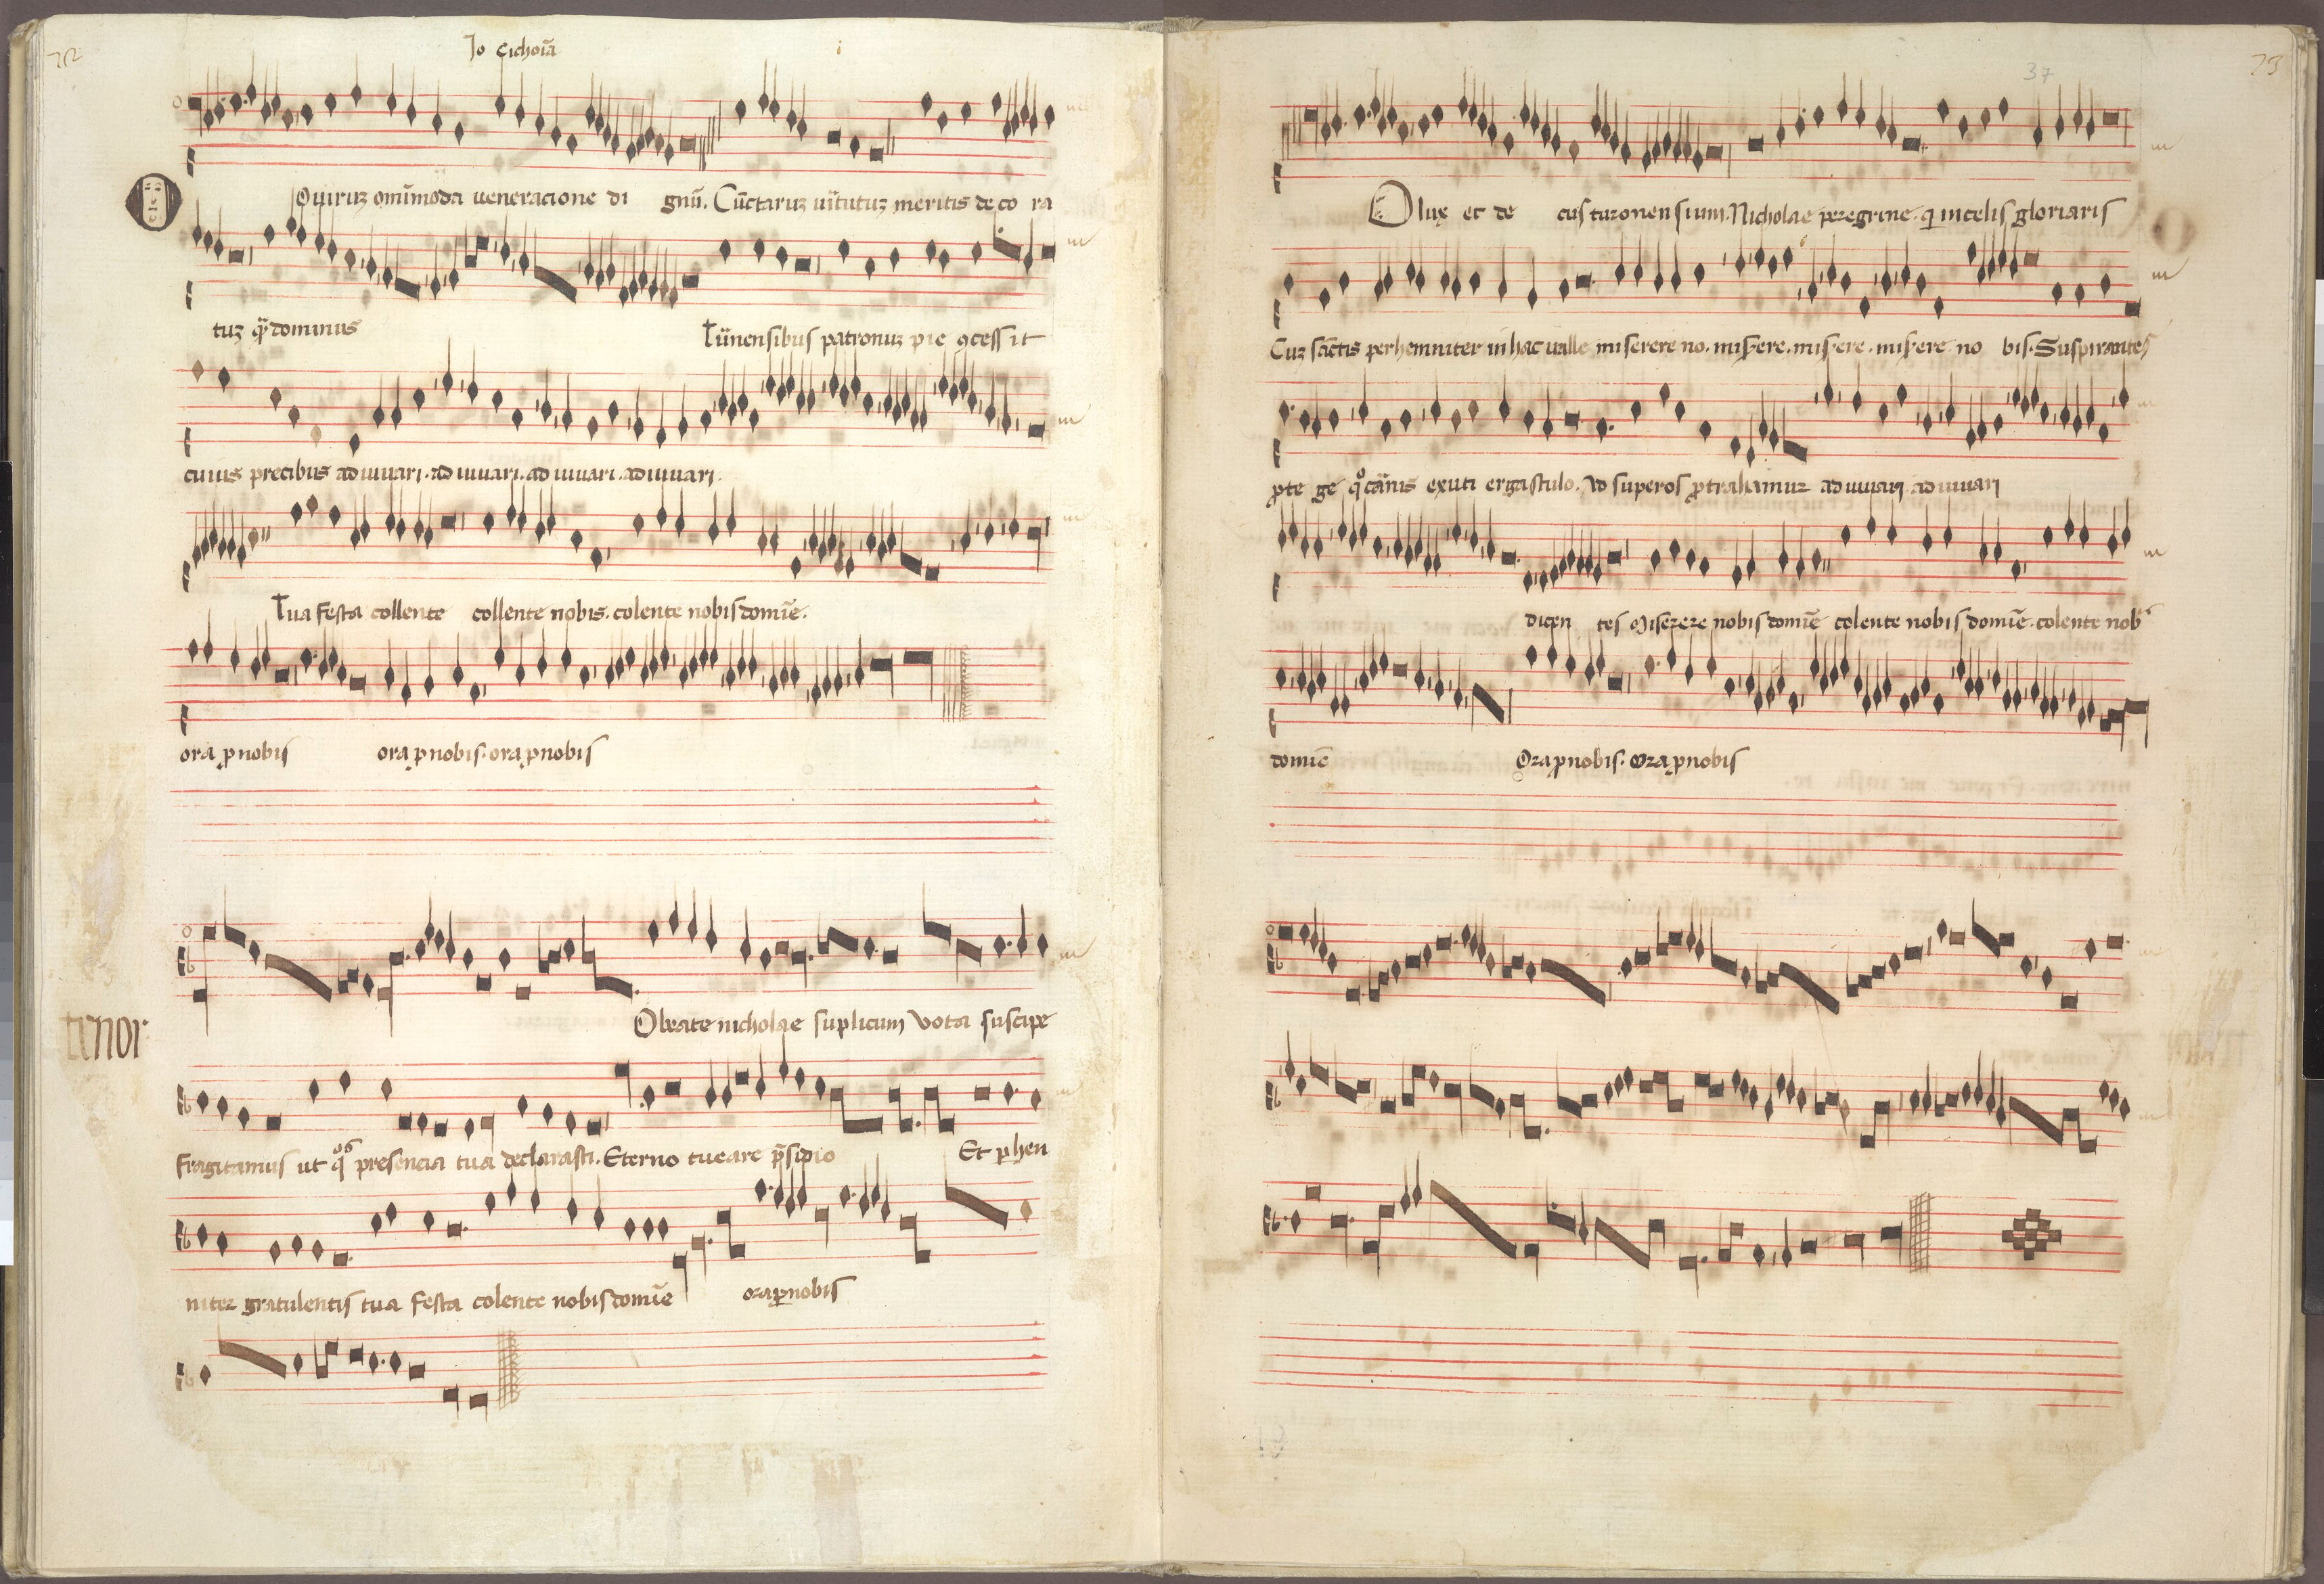 72
Jo Cichoīa
O
O uiruz omīmoda veneracione di gnū. Cūctaruz uirtutuz meritis de co ra
tuz dominus Tūnensibus patronuz pie ꝯcess it
cuius precibus adiuuari. adiuuari. adiuuari. adiuuari.
Tua festa collente collente nobis. colente nobis domīe.
ora ꝓ nobis ora ꝓ nobis. ora ꝓ nobis
tenor
O beate nicholae suplicum vota suscipe
Fragitamus ut presencia tua declarasti. Eterno tueare p̄sidio Et ꝑhen
niter gratulentis tua festa colente nobis domīe ora ꝓ nobis
73
37
O lux et de cus turonensium. Nicholae peregrine. q in celis gloriaris
Cuz sāctis perhemniter in hac ualle miserere no. misere. misere. misere no bis. Suspirantes
ꝓte ge exuti ergastulo. Ad superos ꝓtrahamur adiuuari. adiuuari
dicen tes Miserere nobis domīe colente nobis domīe. colente nob
domīe Ora ꝓ nobis. ora ꝓ nobis